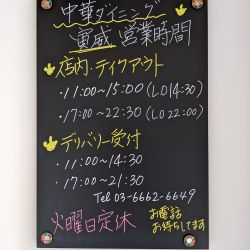 中華ダイニング
寅威 営業時間
店内・テイクアウト
・11:00〜15:00 (LO14:30)
・17:00〜22:30 (LO22:00)
デリバリー受付
・11:00〜14:30
・17:00〜21:30
Tel 03-6662-6649
火曜日定休
お電話
お待ちしてます